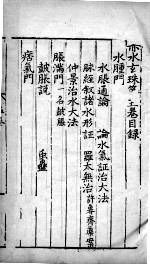 赤水玄珠 五卷目錄
水腫門
水脹通論 論水氣証治大法
脉經敘諸水形証 羅太無治許魯齋案
仲景治水大法
脹滿門 一名鼓脹
鼓脹說
痞氣門